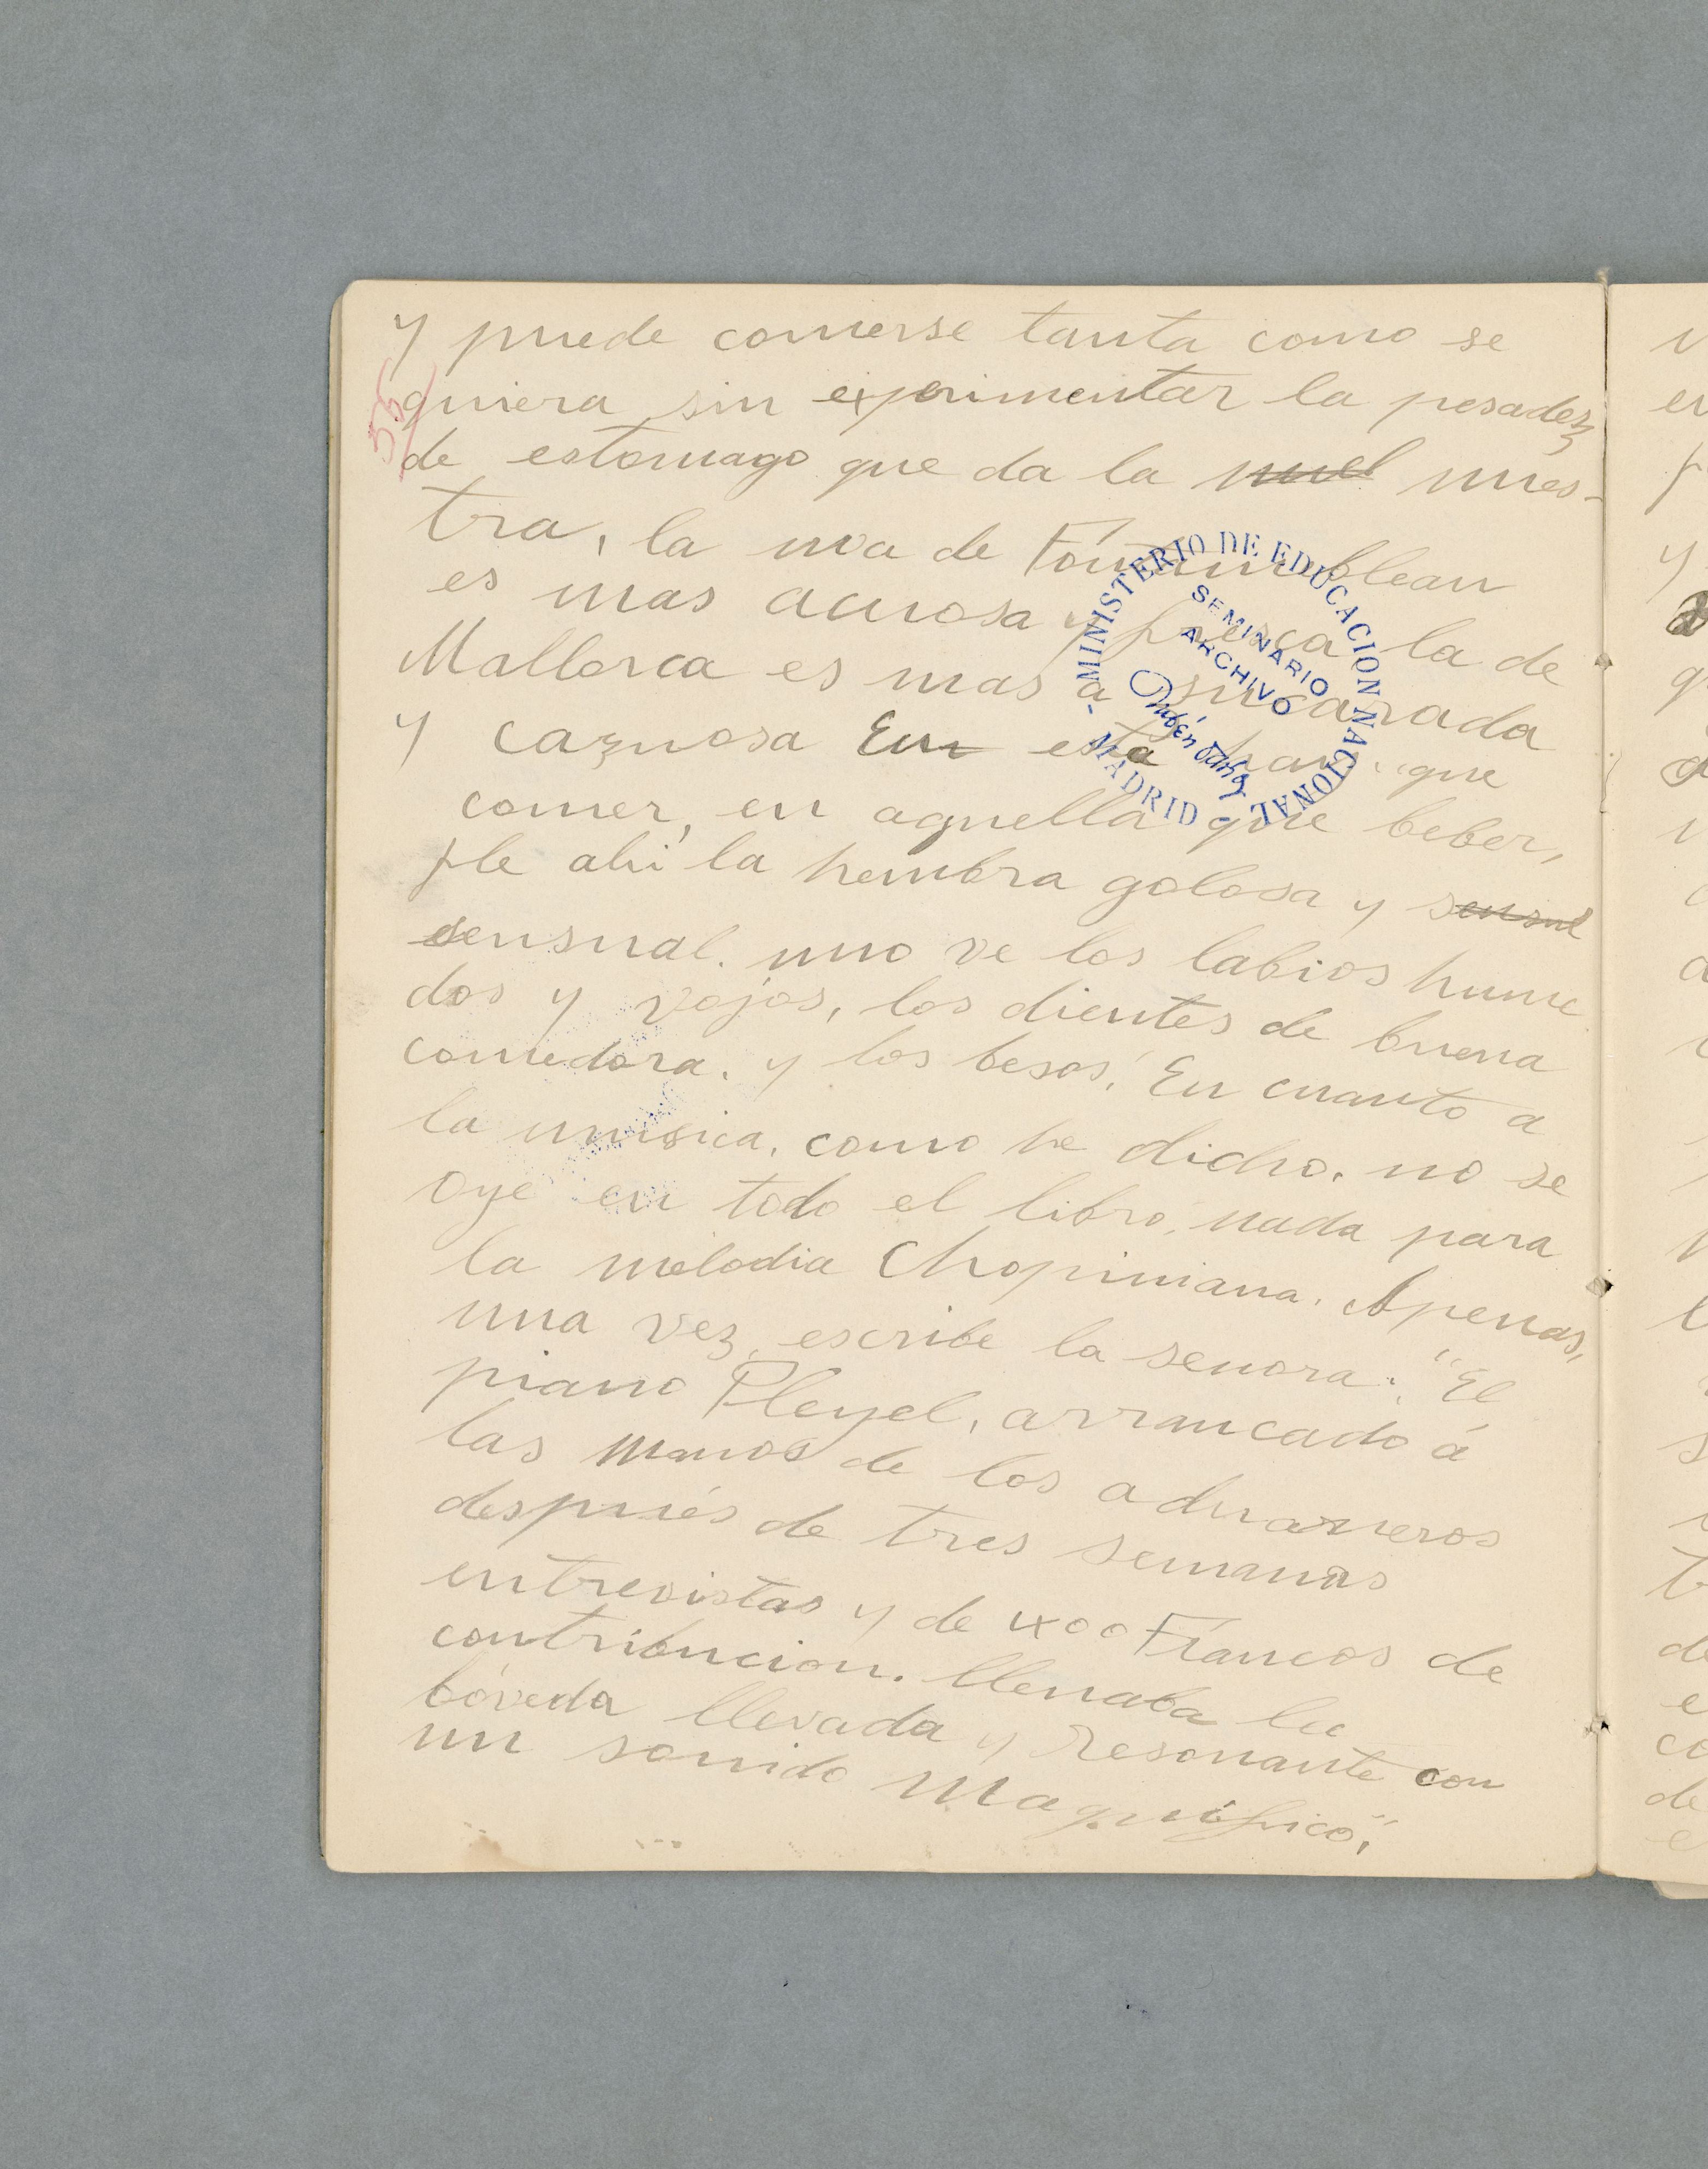 y puede comerse tanta como se
35
quiera sin experimentar la pesadez
de estomago que da la nuel nues-
tra, la uva de Fontainebleau
es mas acuosa y fresca la de
Mallorca es mas azucarada
y carnosa En esta hay que
comer, en aquella que beber,
He ahi la hembra golosa y sensul
sensual. uno ve los labios hume
dos y rojos, los dientes de buena
comedora. y los besos! En cuanto a
la musica, como he dicho, no se
oye en todo el libro, nada para
la melodia Chopiniana. Apenas,
una vez, escribe la senora: "El
piano Pleyel, arrancado á
las manos de los aduaneros
después de tres semanas
entrevistas y de 400 Francos de
contribucion. llenaba la
bóveda llevada y resonante con
un sonido Magnifico",
MINISTERIO DE EDUCACION NACIONAL
- MADRID -
SEMINARIO
ARCHIVO
Rubén Darío